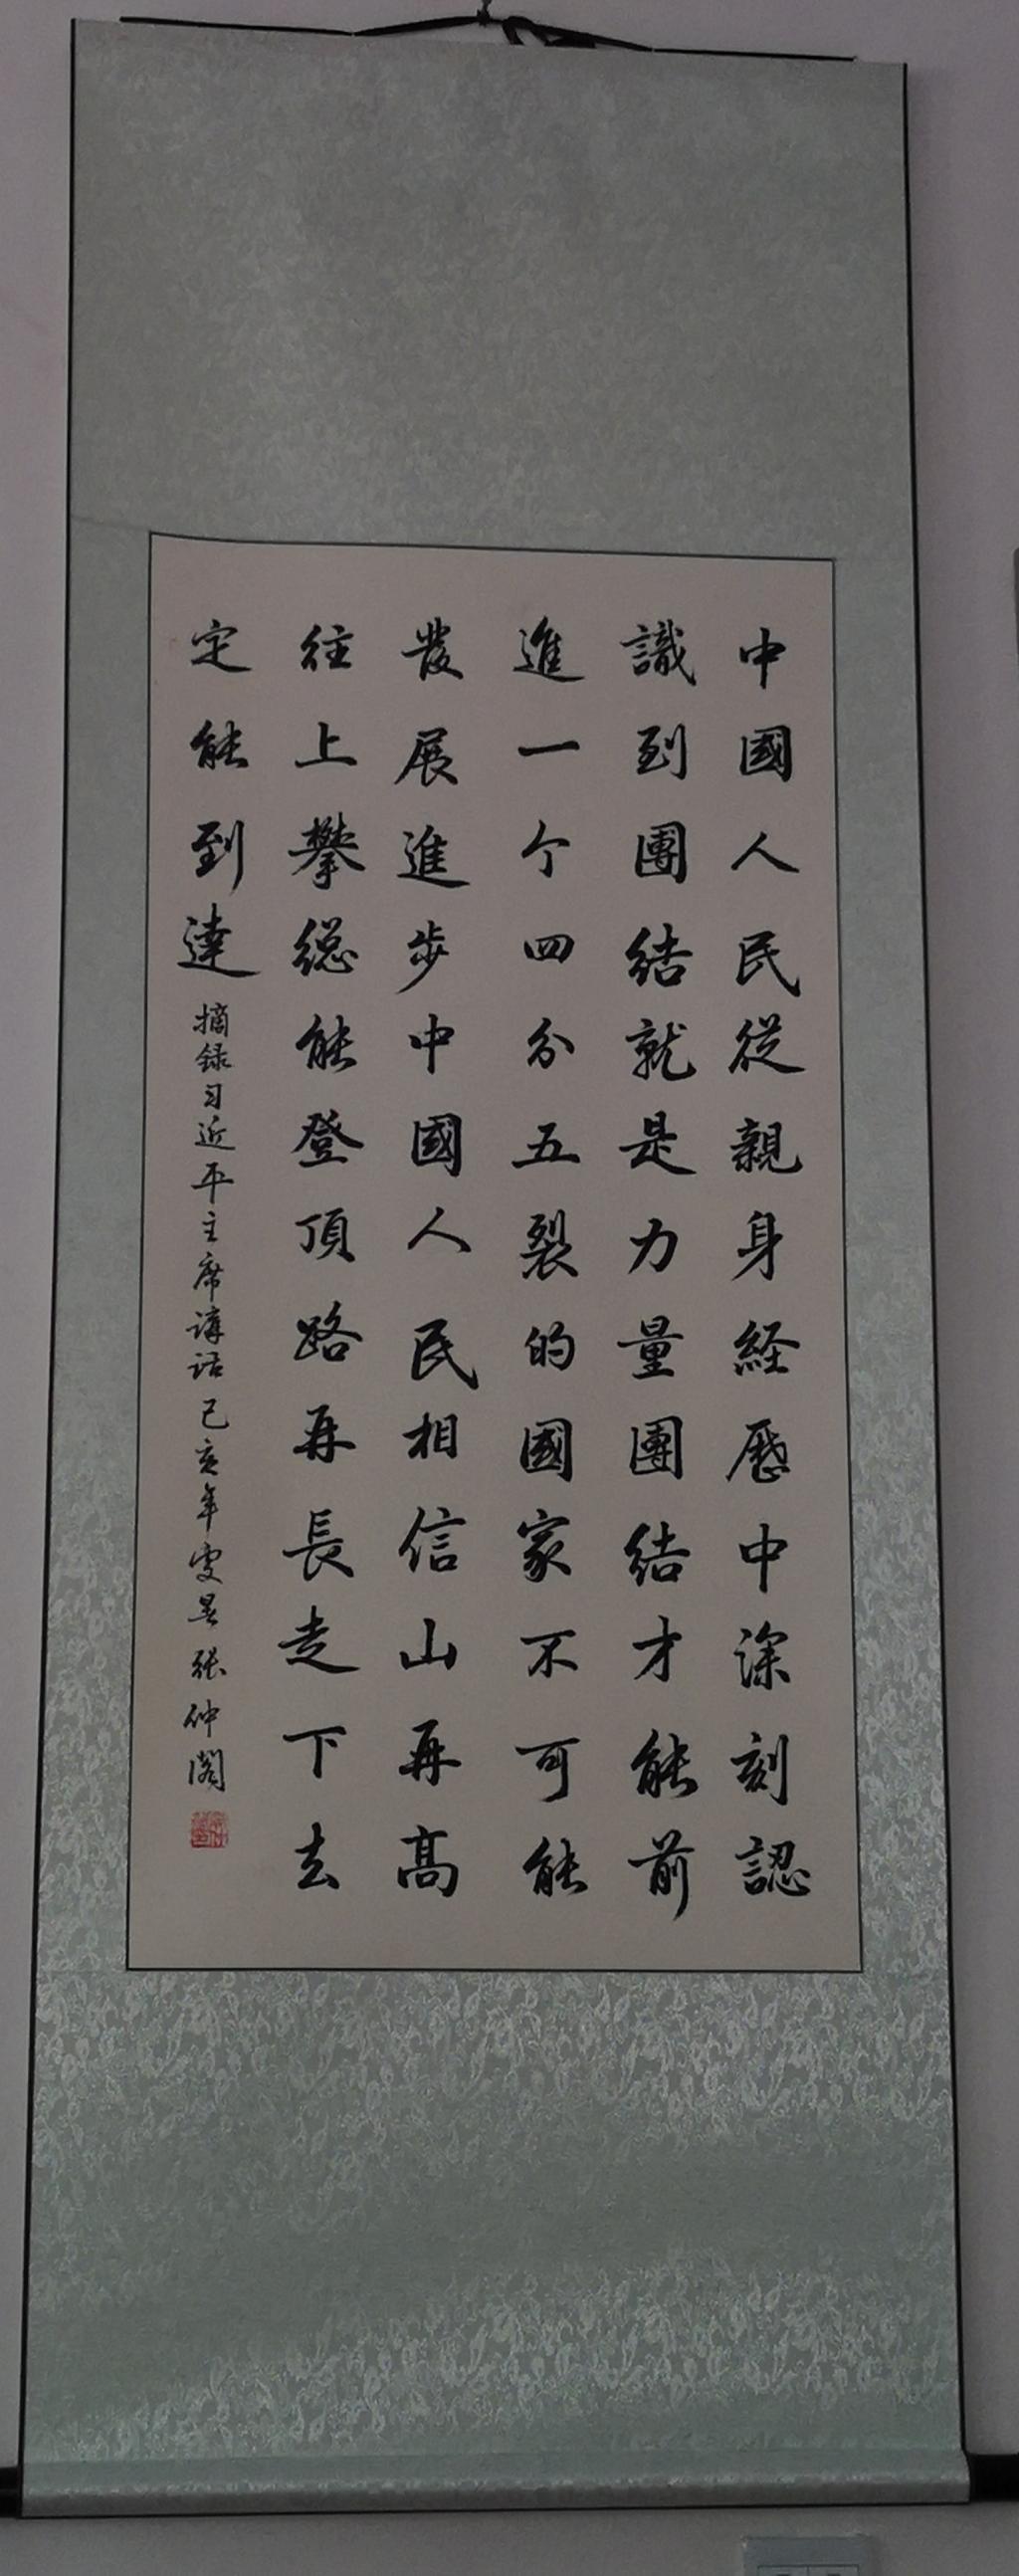 中國人民從親身経歷中深刻認
識到團結就是力量團結才能前
進一个四分五裂的國家不可能
發展進步中國人民相信山再高
往上攀総能登頂路再長走下去
定能到達
摘録习近平主席講話己亥年雯昙張仲閣